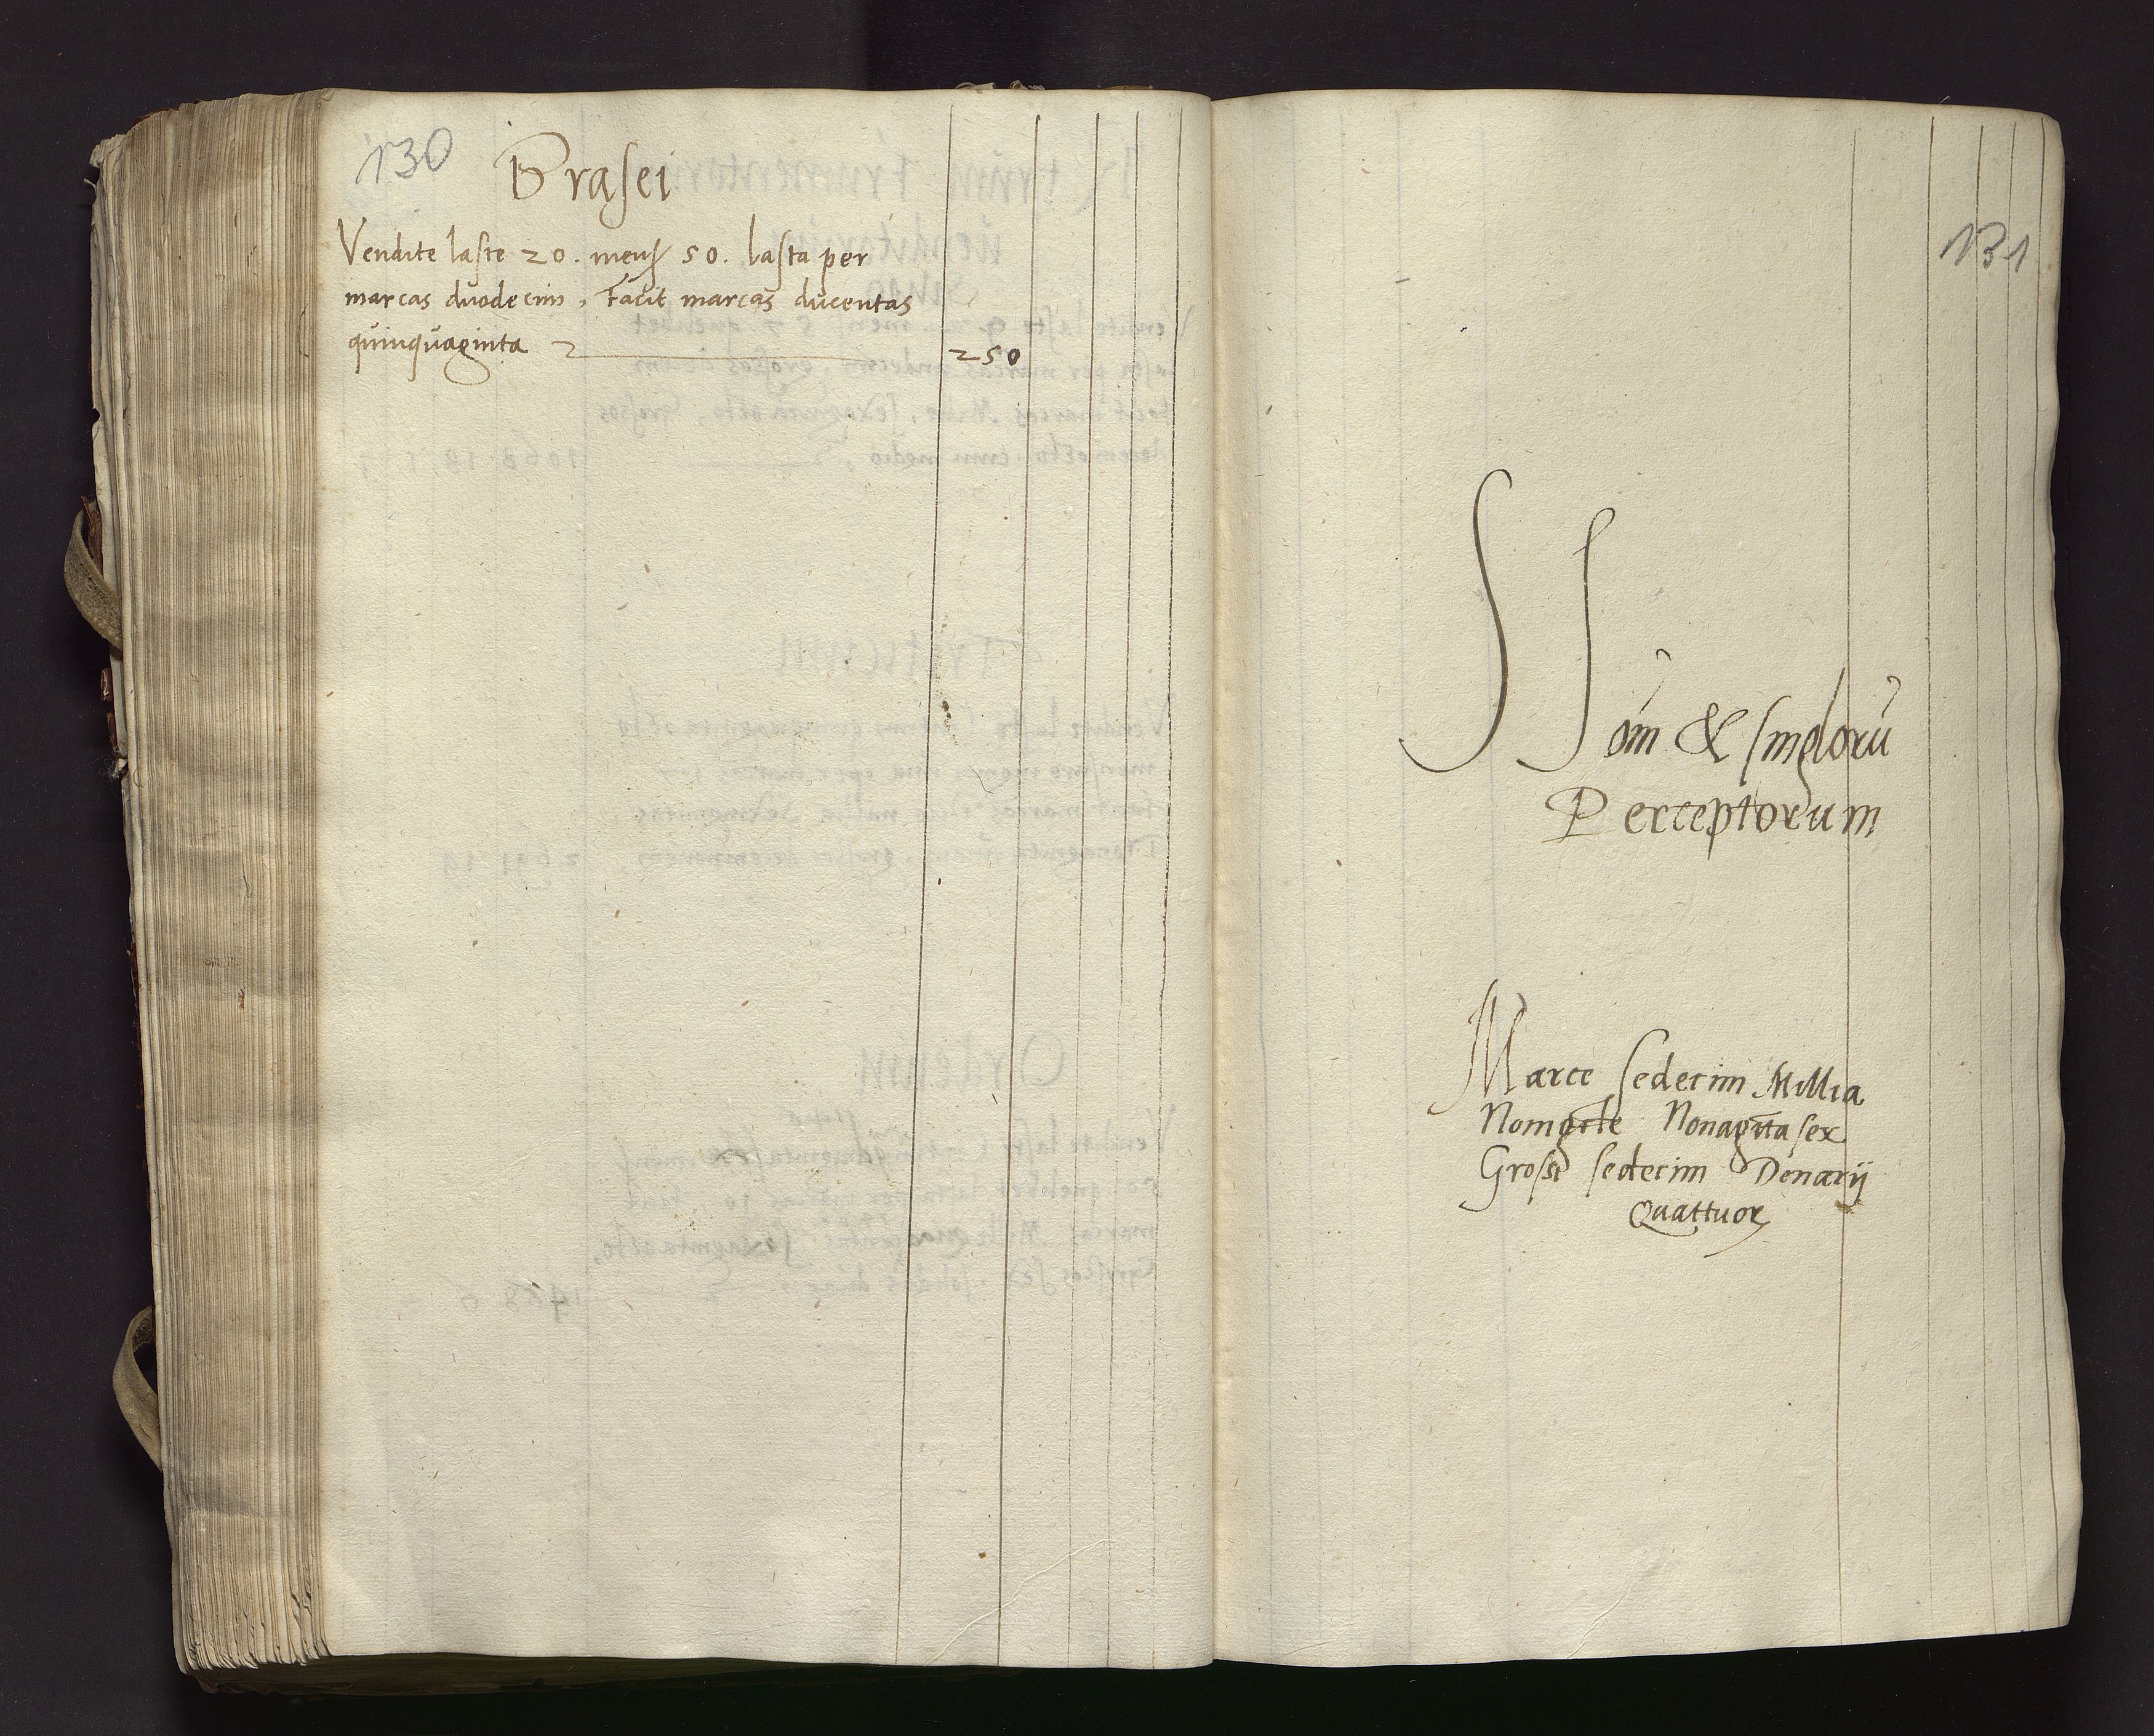 130
Brasei
Vendite laste 20. mens 50. lasta per
marcas duodecim, Facit marcas ducentas
quinquaginta 250
131
SS om̃ & singlorū
Perceptorum
Marce sedecim Millia
Nomgẽte Nonagĩta sex
Grossi sedecim Denarij
Quattuor